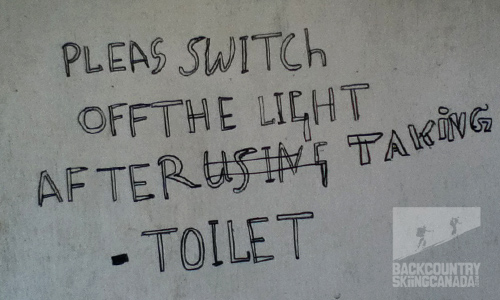 PLEAS SWITCh
OFFTHE LIGHT
AFTER USING TAKING
- TOILET
BACKCOUNTRY
SKiiNGCANADA